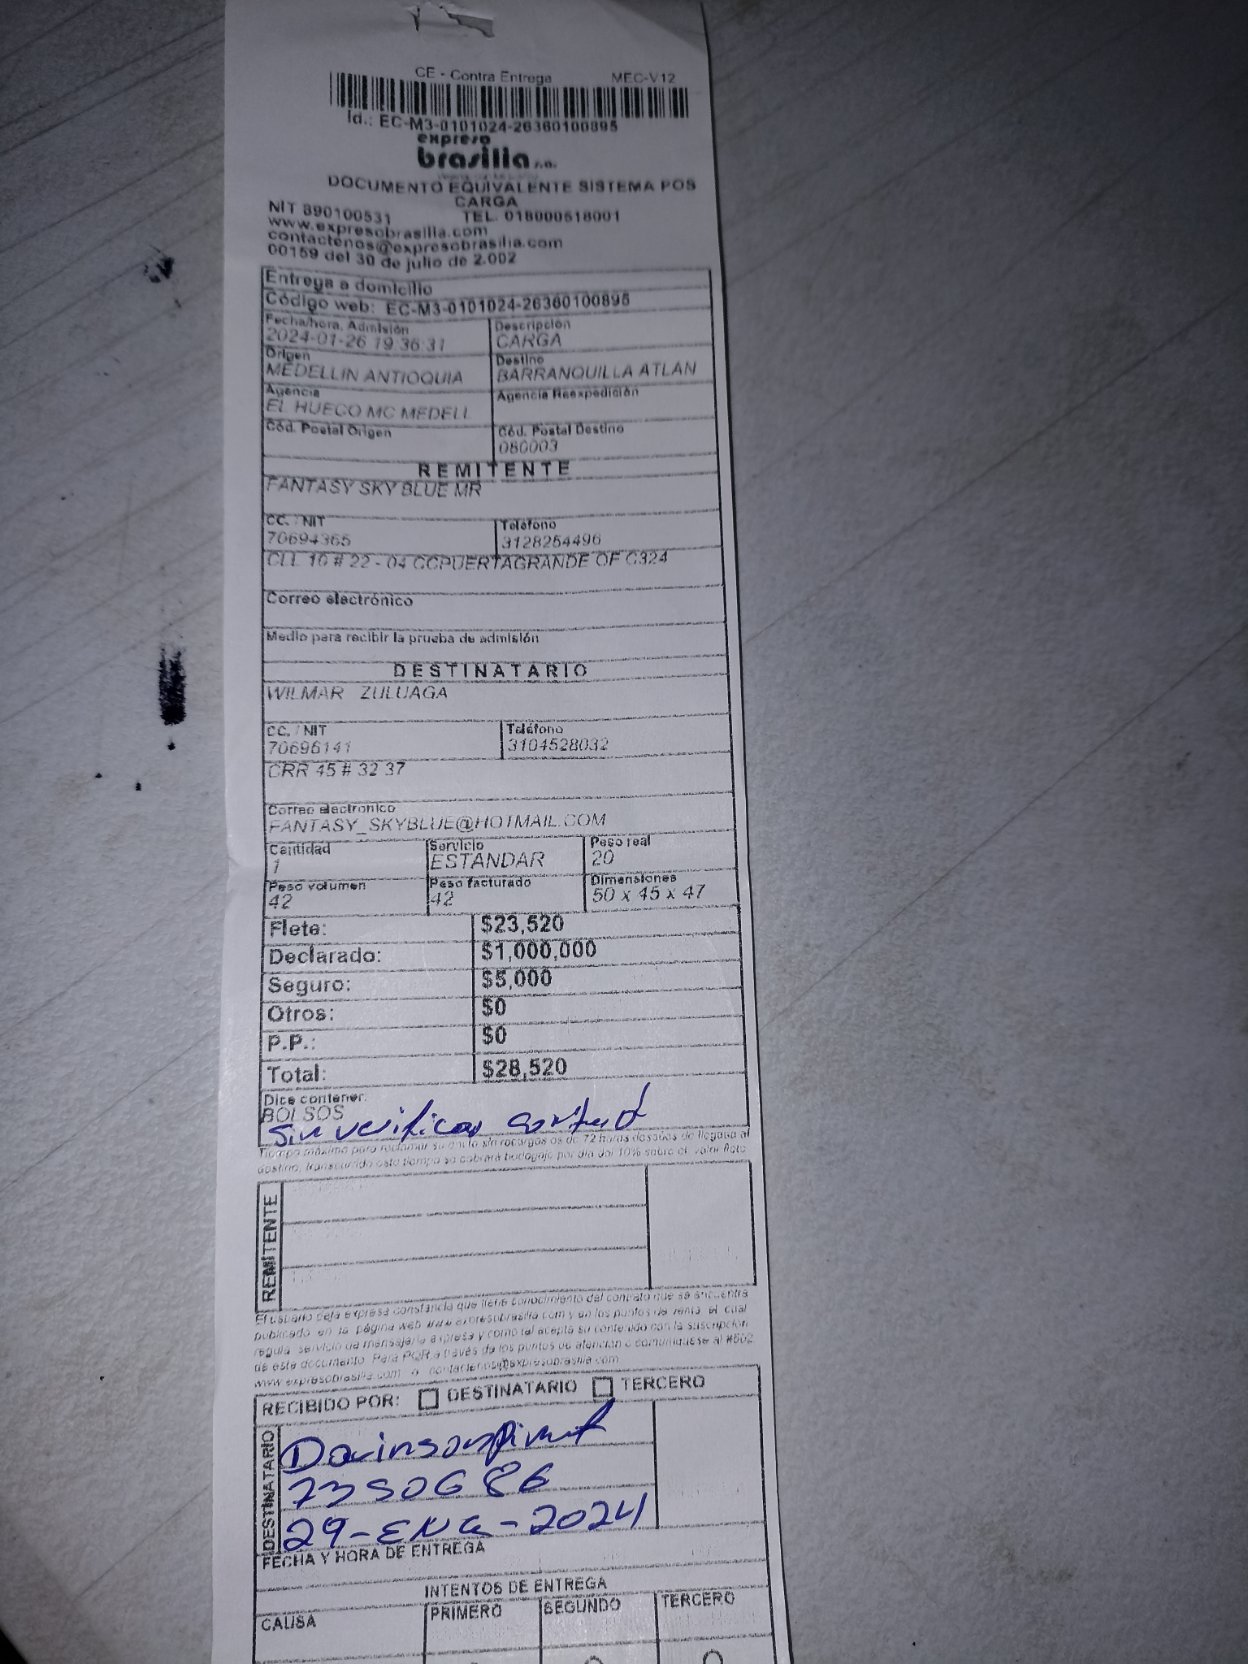 CE - Contra Entrega MEC-V12
Id.: EC-M3-0101024-26360100895
expreso
brasilia s.a.
DOCUMENTO EQUIVALENTE SISTEMA POS
CARGA
NIT 890100531 TEL. 018000518001
www.expresobrasilia.com
contactenos@expresobrasilia.com
00159 del 30 de julio de 2.002
Entrega a domicilio
Código web: EC-M3-0101024-26360100895
Fecha/hora. Admisión Descripción
2024-01-26 19:36:31 CARGA
Origen Destino
MEDELLIN ANTIOQUIA BARRANQUILLA ATLAN
Agencia Agencia Reexpedición
EL HUECO MC MEDELL
Cód. Postal Origen Cód. Postal Destino
080003
REMITENTE
FANTASY SKY BLUE MR
CC. / NIT Teléfono
70694365 3128254496
CLL 10 # 22 - 04 CCPUERTAGRANDE OF C324
Correo electrónico
Medio para recibir la prueba de admisión
DESTINATARIO
WILMAR ZULUAGA
CC. / NIT Teléfono
70696141 3104528032
CRR 45 # 32 37
Correo electronico
FANTASY_SKYBLUE@HOTMAIL.COM
Cantidad Servicio Peso real
1 ESTANDAR 20
Peso volumen Peso facturado Dimensiones
42 42 50 x 45 x 47
Flete: $23,520
Declarado: $1,000,000
Seguro: $5,000
Otros: $0
P.P.: $0
Total: $28,520
Dice contener:
BOLSOS
sin verificar
Tiempo máximo para reclamar su envío sin recargos es de 72 horas después de llegado al
destino, transcurrido este tiempo se cobrará bodegaje por día del 10% sobre el valor flete
REMITENTE
El usuario deja expresa constancia que tiene conocimiento del contrato que se encuentra
publicado en la página web www.expresobrasilia.com y en los puntos de venta, el cual
regula servicio de mensajería expresa y como tal acepta su contenido con la suscripción
de este documento. Para PQR a través de los puntos de atención o comuníquese al #502
www.expresobrasilia.com o contactenos@expresobrasilia.com
RECIBIDO POR: DESTINATARIO TERCERO
DESTINATARIO
73506 86
29-ENE-2024
FECHA Y HORA DE ENTREGA
INTENTOS DE ENTREGA
CAUSA PRIMERO SEGUNDO TERCERO